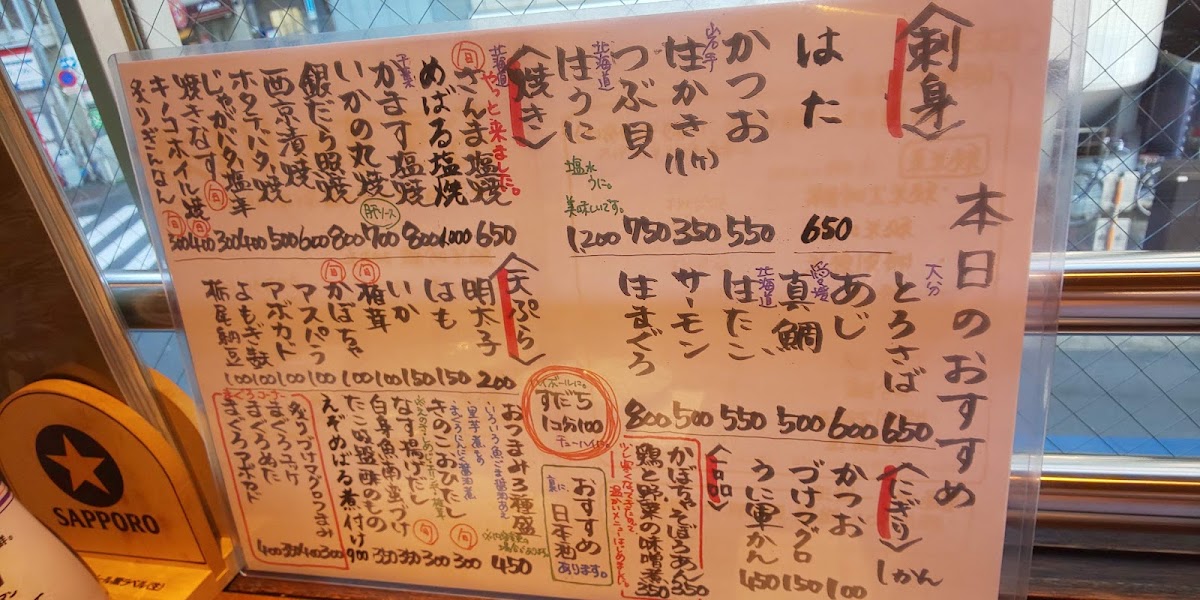 本日のおすすめ
〈刺身〉
はた 650
かつお 550
岩手
生かき 350
つぶ貝 750
北海道
生うに 1,200
塩水うに。
美味しいです。
大分
とろさば 650
あじ 600
愛媛
真鯛 500
北海道
サーモン 500
800
〈焼き〉
北海道
やっと来ました。
旬
さんま塩焼 650
めばる塩焼 1,000
千葉
かます塩焼 800
いかの丸焼 700
肝ソース
銀だら照焼 800
西京漬焼 600
ホタテバター焼 500
じゃがバター塩辛 400
焼きなす 300
旬
キノコホイル焼 400
旬
炙りぎんなん 300
旬
〈天ぷら〉
明太子 200
はも 150
いか 150
椎茸 100
旬
かぼちゃ 100
旬
アスパラ 100
アボカド 100
よもぎ麩 100
栃尾納豆 100
すだち
1コ分100
チューハイに。
〈にぎり〉
1かん
かつお 100
づけマグロ 150
うに軍かん 450
〈一品〉
かぼちゃそぼろあん 350
鶏と野菜の味噌煮 350
おつまみ3種盛 450
きのこおひたし 300
旬
なす揚げだし 300
旬
白身魚南蛮づけ 350
たこ吸盤酢のもの 350
えぞめばる煮付け 900
まぐろコーナー
炙りづけマグロつまみ 300
まぐろユッケ 400
まぐろぬた 350
まぐろアボカド 400
おすすめ
日本酒
あります。
裏に
SAPPORO